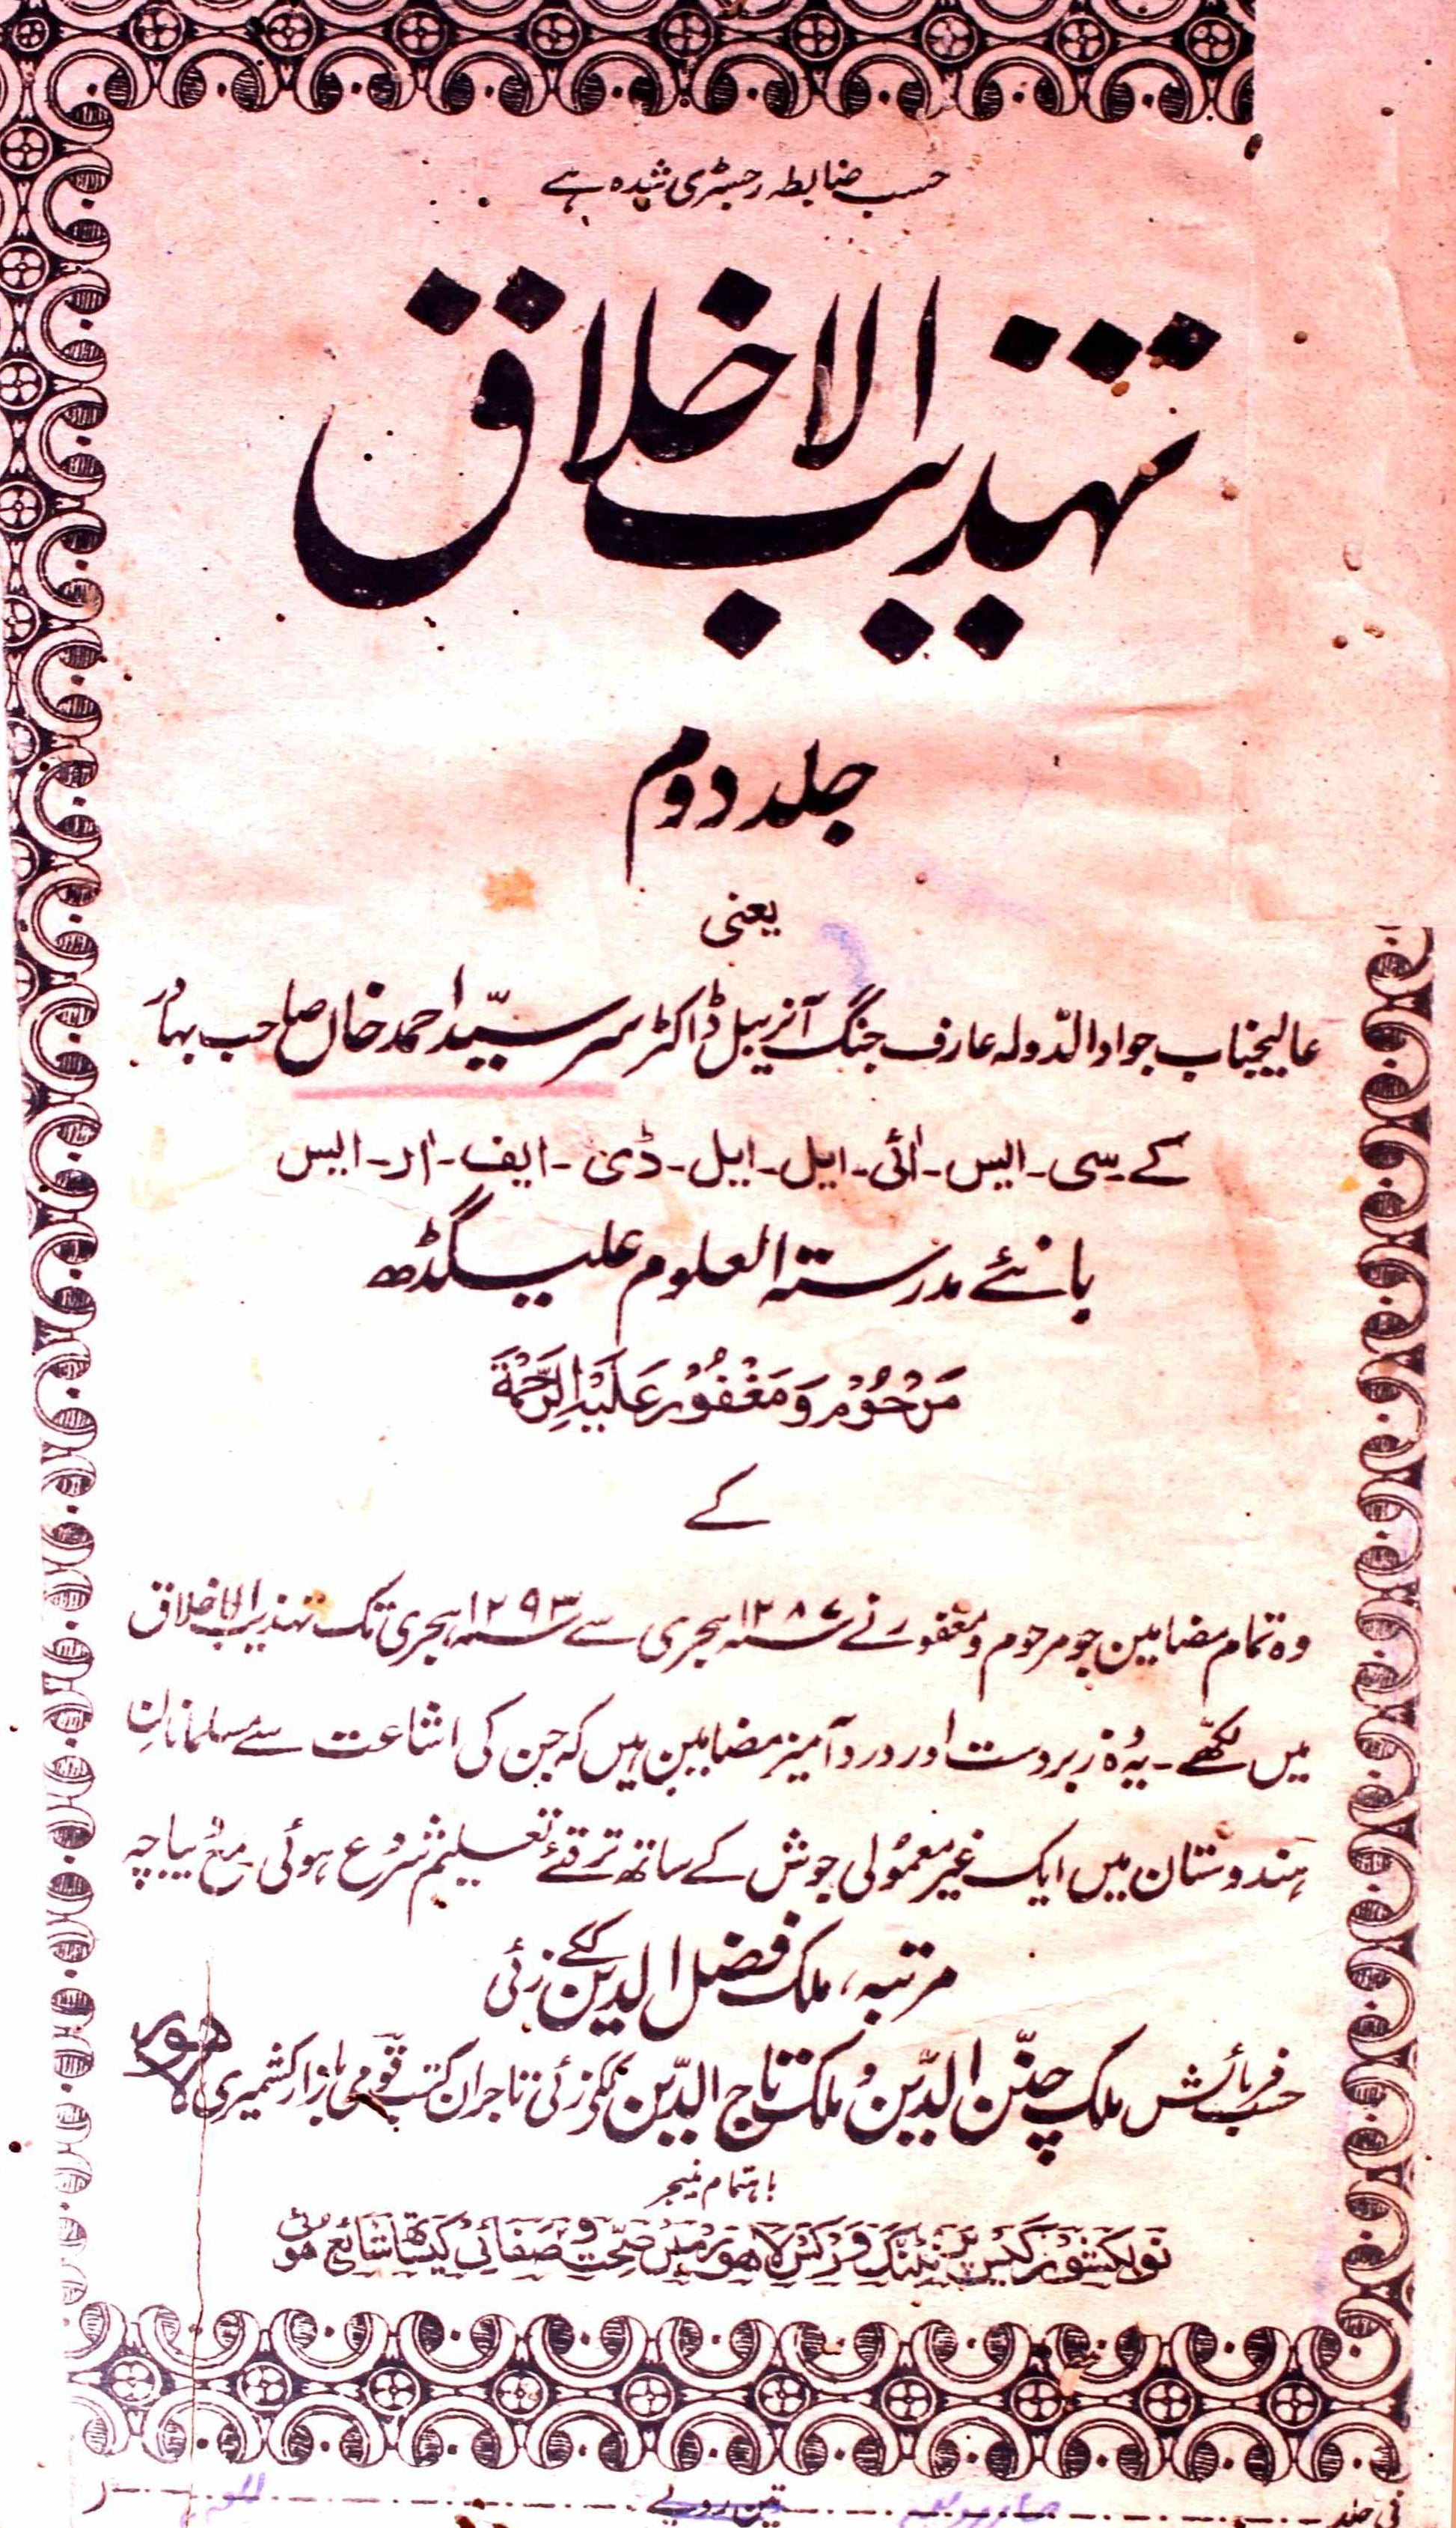 حسب ضابطہ رجسٹری شدہ ہے
تہذیب الاخلاق
جلد دوم
یعنی
عالیجناب جواد الدّولہ عارف جنگ آنریبل ڈاکٹر سر سیّد احمد خاں صاحب بہادر
کے۔سی۔ایس۔آئی۔ایل۔ایل۔ڈی۔ایف۔آر۔ایس
بانئے مدرستہ العلوم علیگڈھ
مَرْحُوْم وَ مَغْفُوْر عَلَیْہِ الرَّحْمَۃ
کے
وہ تمام مضامین جو مرحوم و مغفور نے ۱۲۸۷ ہجری سے ۱۲۹۳ ہجری تک تہذیب الاخلاق
میں لکھّے۔ یہ وُہ زبردست اور درد آمیز مضامین ہیں کہ جن کی اشاعت سے مسلمانانِ
ہندوستان میں ایک غیر معمُولی جوش کے ساتھ ترقئے تعلیم شرُوع ہوئی مع دیباچہ
مرتبہ، ملک فضل الدین ککے زئی
حسب فرمائش ملک چنّن الدّین و ملک تاج الدّین ککے زئی تاجران کتب قومی بازار کشمیری لاہور
باہتمام منیجر
نولکشور گیس پرنٹنگ ورکس لاہور میں صحّت و صفائی کیساتھ شائع ہوئی
فی جلد
تین روپے